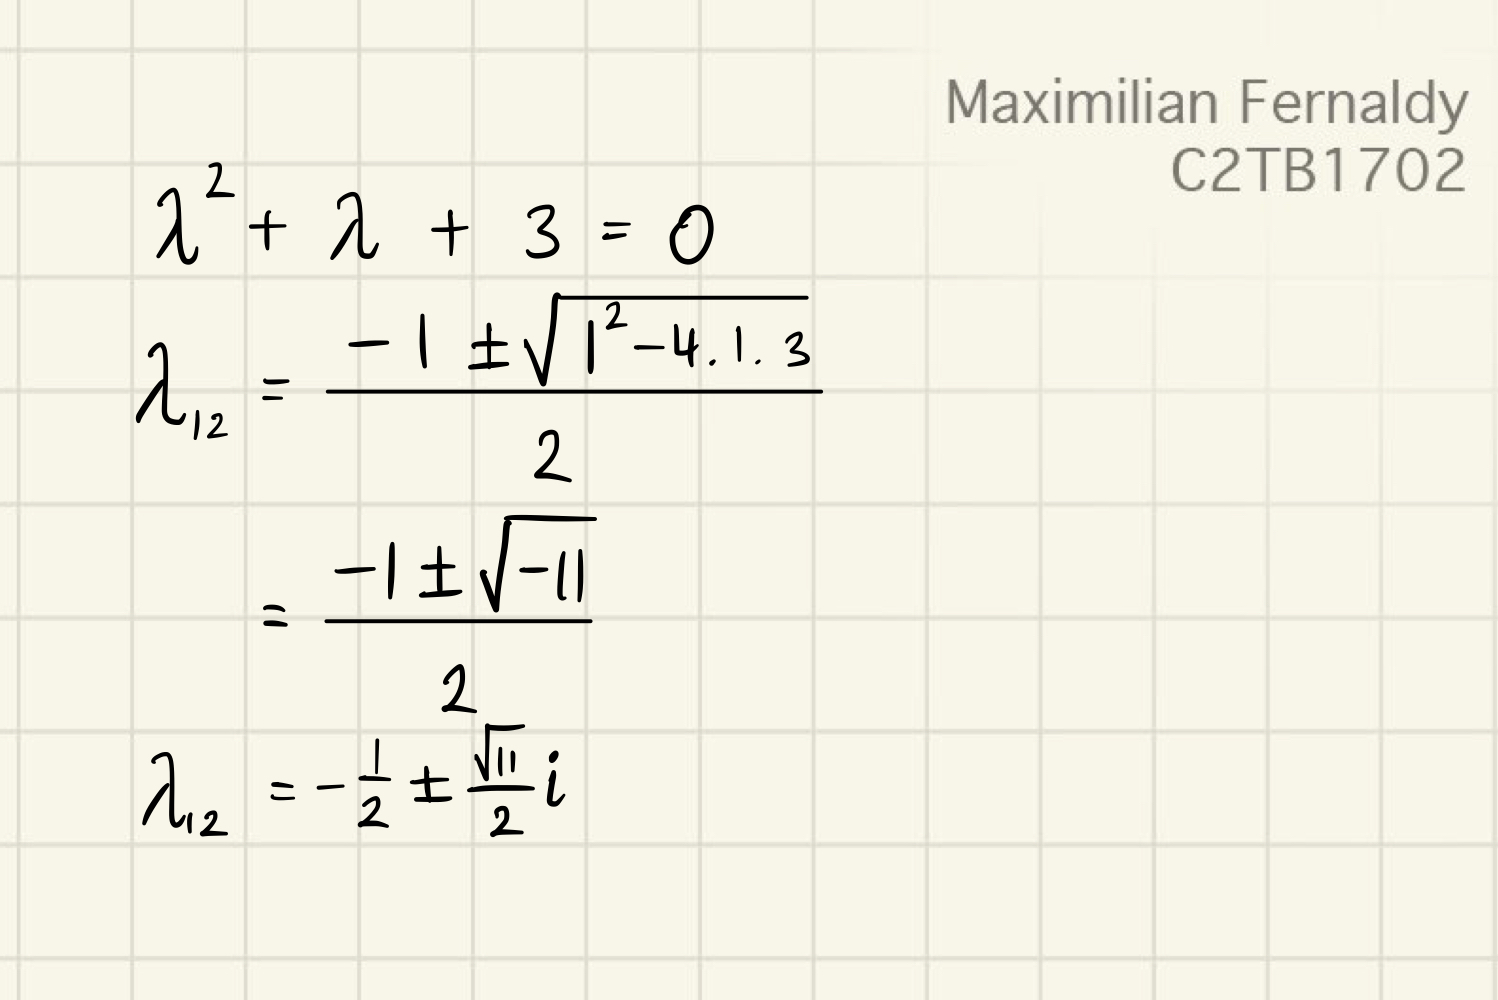 Maximilian Fernaldy
C2TB1702
λ² + λ + 3 = 0
λ₁₂ = (-1 ± √(1² - 4 . 1 . 3)) / 2
= (-1 ± √(-11)) / 2
λ₁₂ = - 1/2 ± √11/2 i